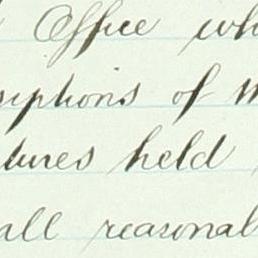 Office who
siptions of m
tures held
all reasonal